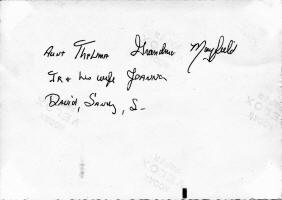 Aunt Thelma Grandma Mayfield
JR + his wife Joanna
David, Sandy, S-